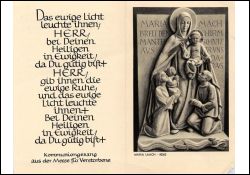 Das ewige licht
leuchte ihnen,
HERR,
bei Deinen
Heiligen
in Ewigkeit,
da Du gütig bist+
HERR,
gib ihnen die
ewige Ruhe,
und das ewige
Licht leuchte
ihnen+
Bei Deinen
Heiligen
in Ewigkeit,
da Du gütig bist+
Kommuniongesang
aus der Messe für Verstorbene
MARIA MACH